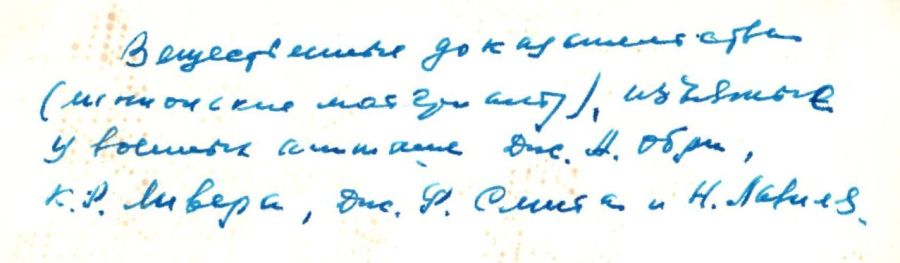 Вещественные доказательства
(шпионские материалы), изъятые
у военных атташе Дж. А. Обри,
К.Р. Ливера, Дж. Ф. Смита и Н. Лавиля.